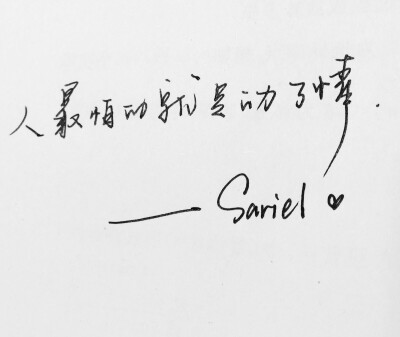 人最怕的就是动了情.
—— Sariel ♥